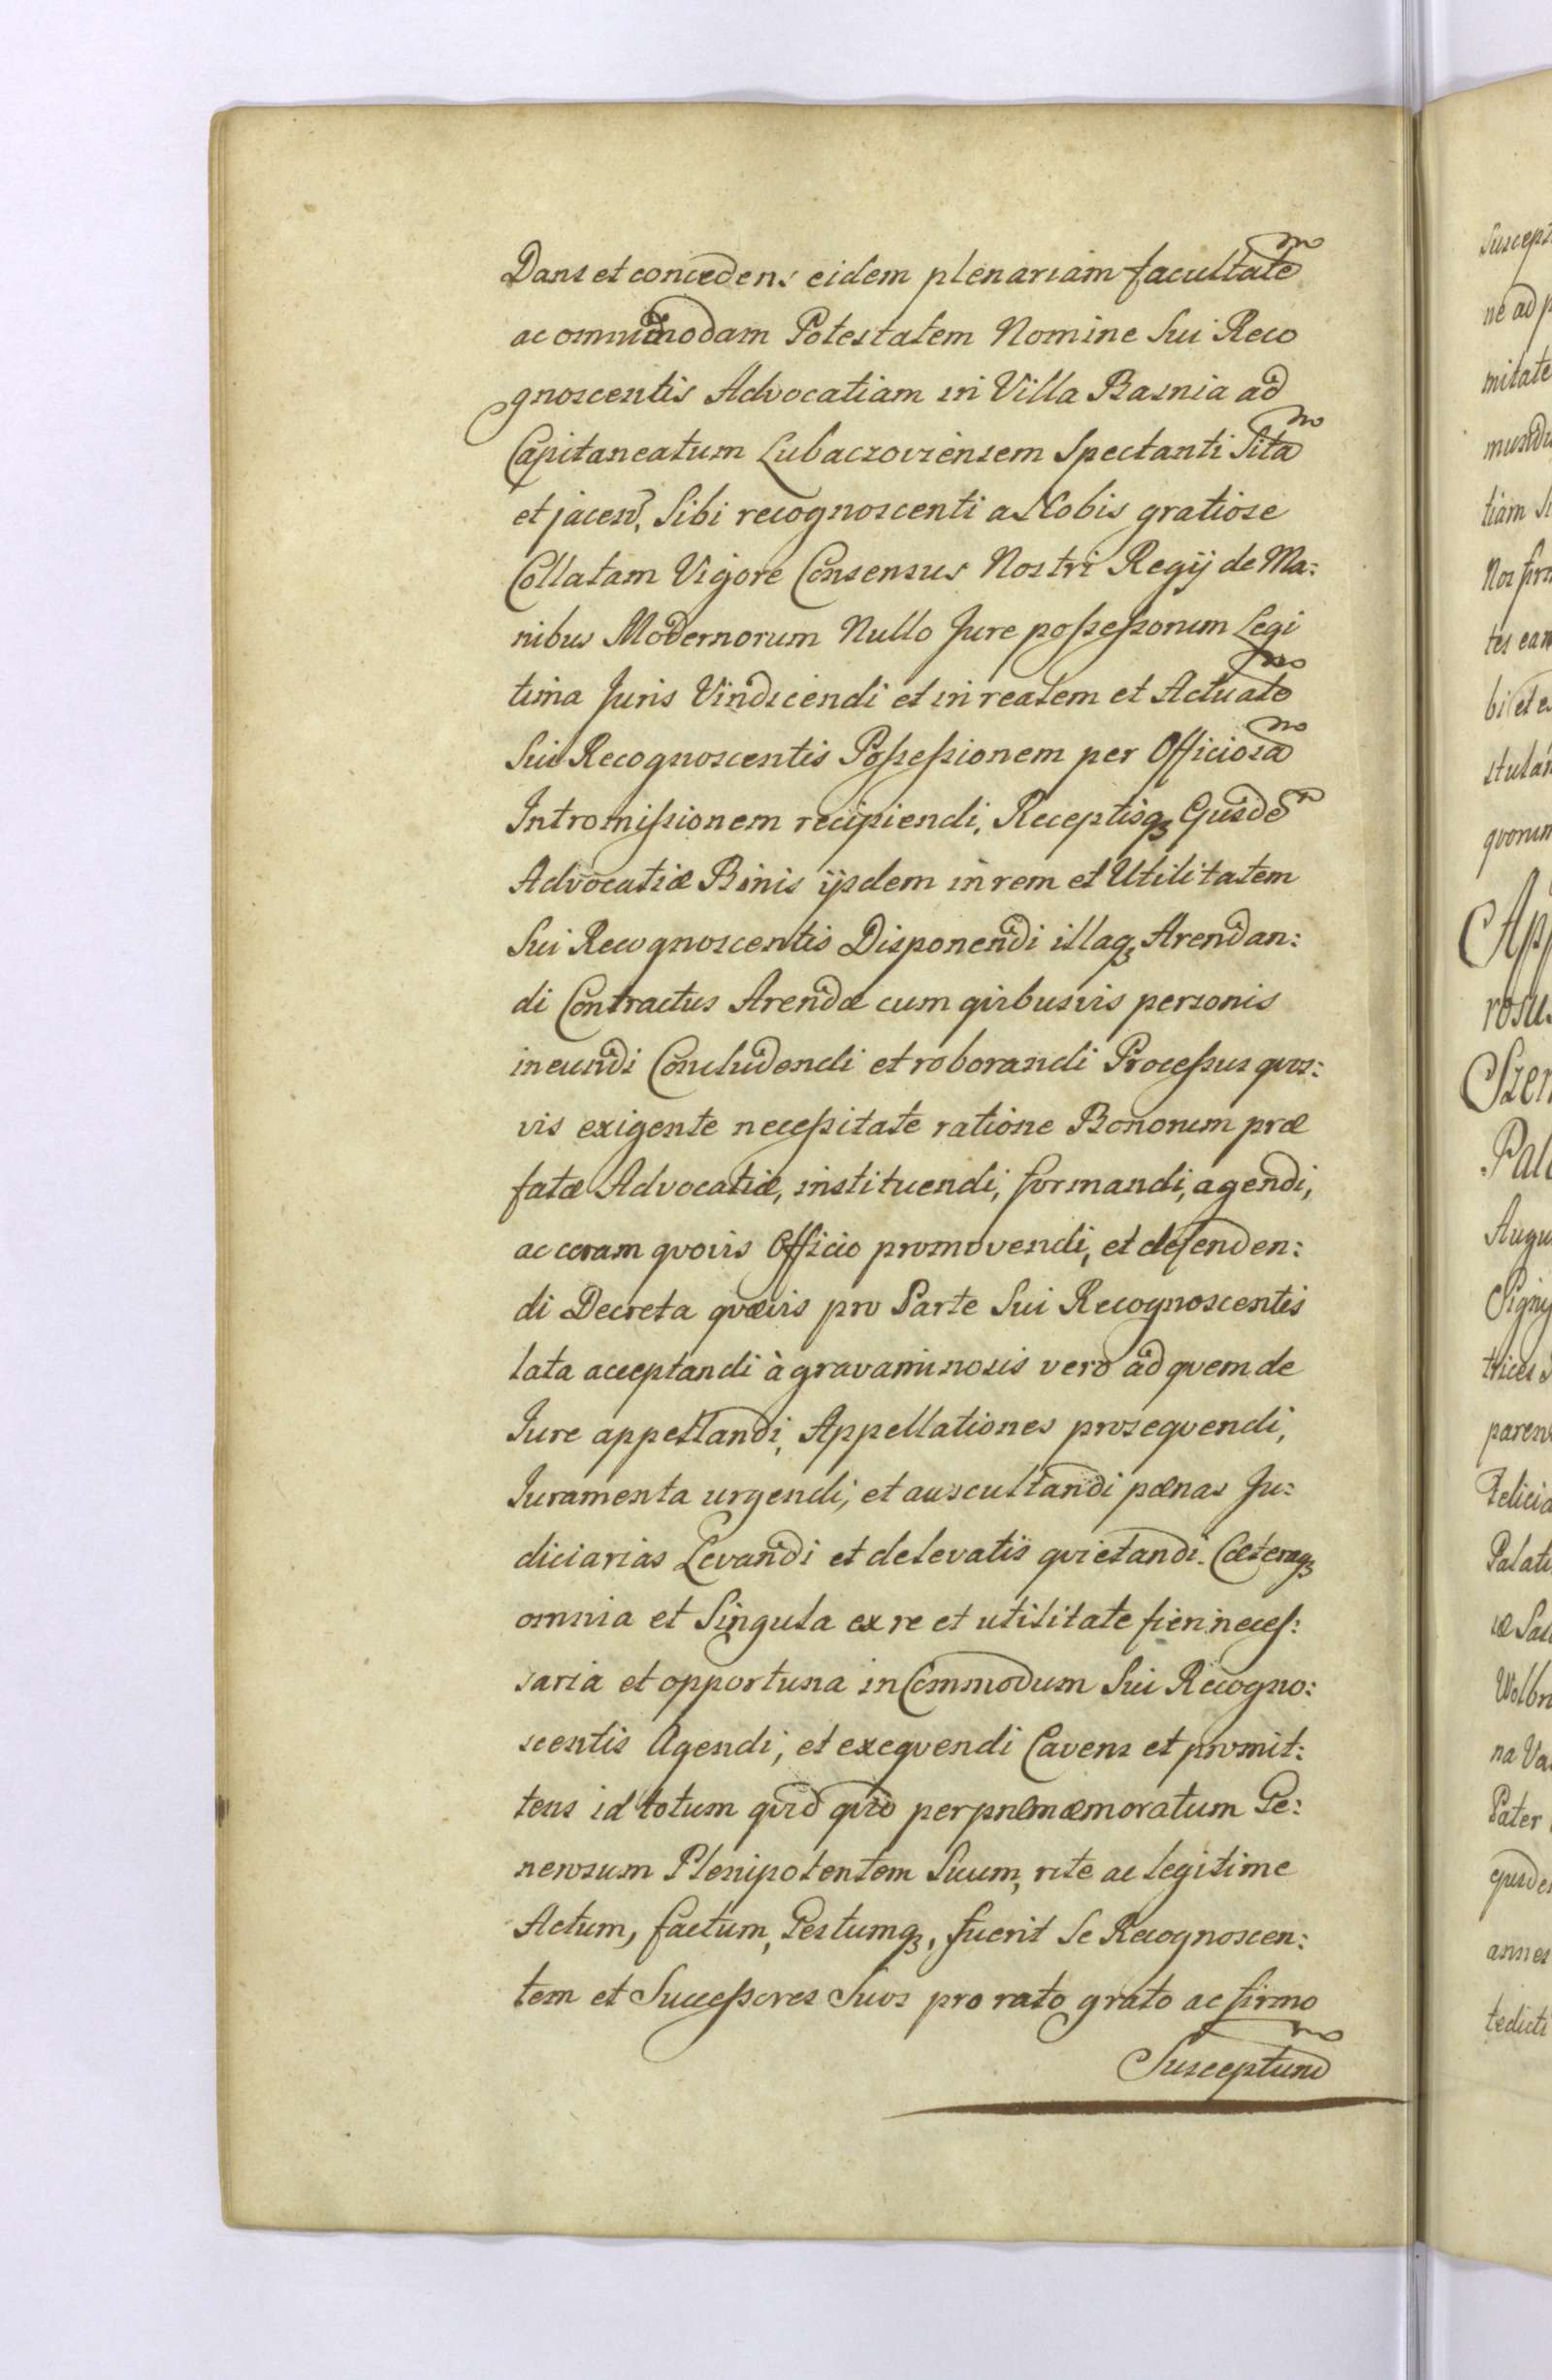 Dans et concedens eidem plenariam facultatem
ac omnimodam Potestatem Nomine Sui Reco
gnoscentis Advocatiam in Villa Basnia ad
Capitaneatum Lubaczoviensem Spectanti Sitam
et jacen, Sibi recognoscenti a Nobis gratiose
Collatam Vigore Consensus Nostri Regij de Ma:
nibus Modernorum Nullo Jure possessorum Legi
tima Juris Vindicendi et in realem et Actualem
Sui Recognoscentis Possessionem per Officiosam
Intromissionem recipiendi, Receptisq3 Ejusdem
Advocatiæ Bonis ijsdem in rem et Utilitatem
Sui Recognoscentis Disponendi illaq3 Arendan:
di Contractus Arendæ cum qvibusvis personis
ineundi Concludendi et roborandi Processus qvos:
vis exigente necessitate ratione Bonorum præ
fatæ Advocatiæ, instituendi, formandi, agendi,
ac coram qvovis Officio promovendi, et defenden:
di Decreta qvævis pro Parte Sui Recognoscentis
lata acceptandi à gravaminosis vero ad qvem de
Jure appellandi, Appellationes proseqvendi,
Juramenta urgendi, et auscultandi pænas Ju:
diciarias Levandi et de levatis qvietandi. Cæteraq3
omnia et Singula ex re et utilitate fieri neces:
saria et opportuna in Commodum Sui Recogno:
scentis Agendi, et exeqvendi Cavens et promit:
tens id totum qvid qvid per præmæmoratum Ge:
nerosum Plenipotentem Suum, rite ac legitime
Actum, factum, Gestumq3, fuerit Se Recognoscen:
tem et Successores Suos pro rato grato ac firmo
Susceptum